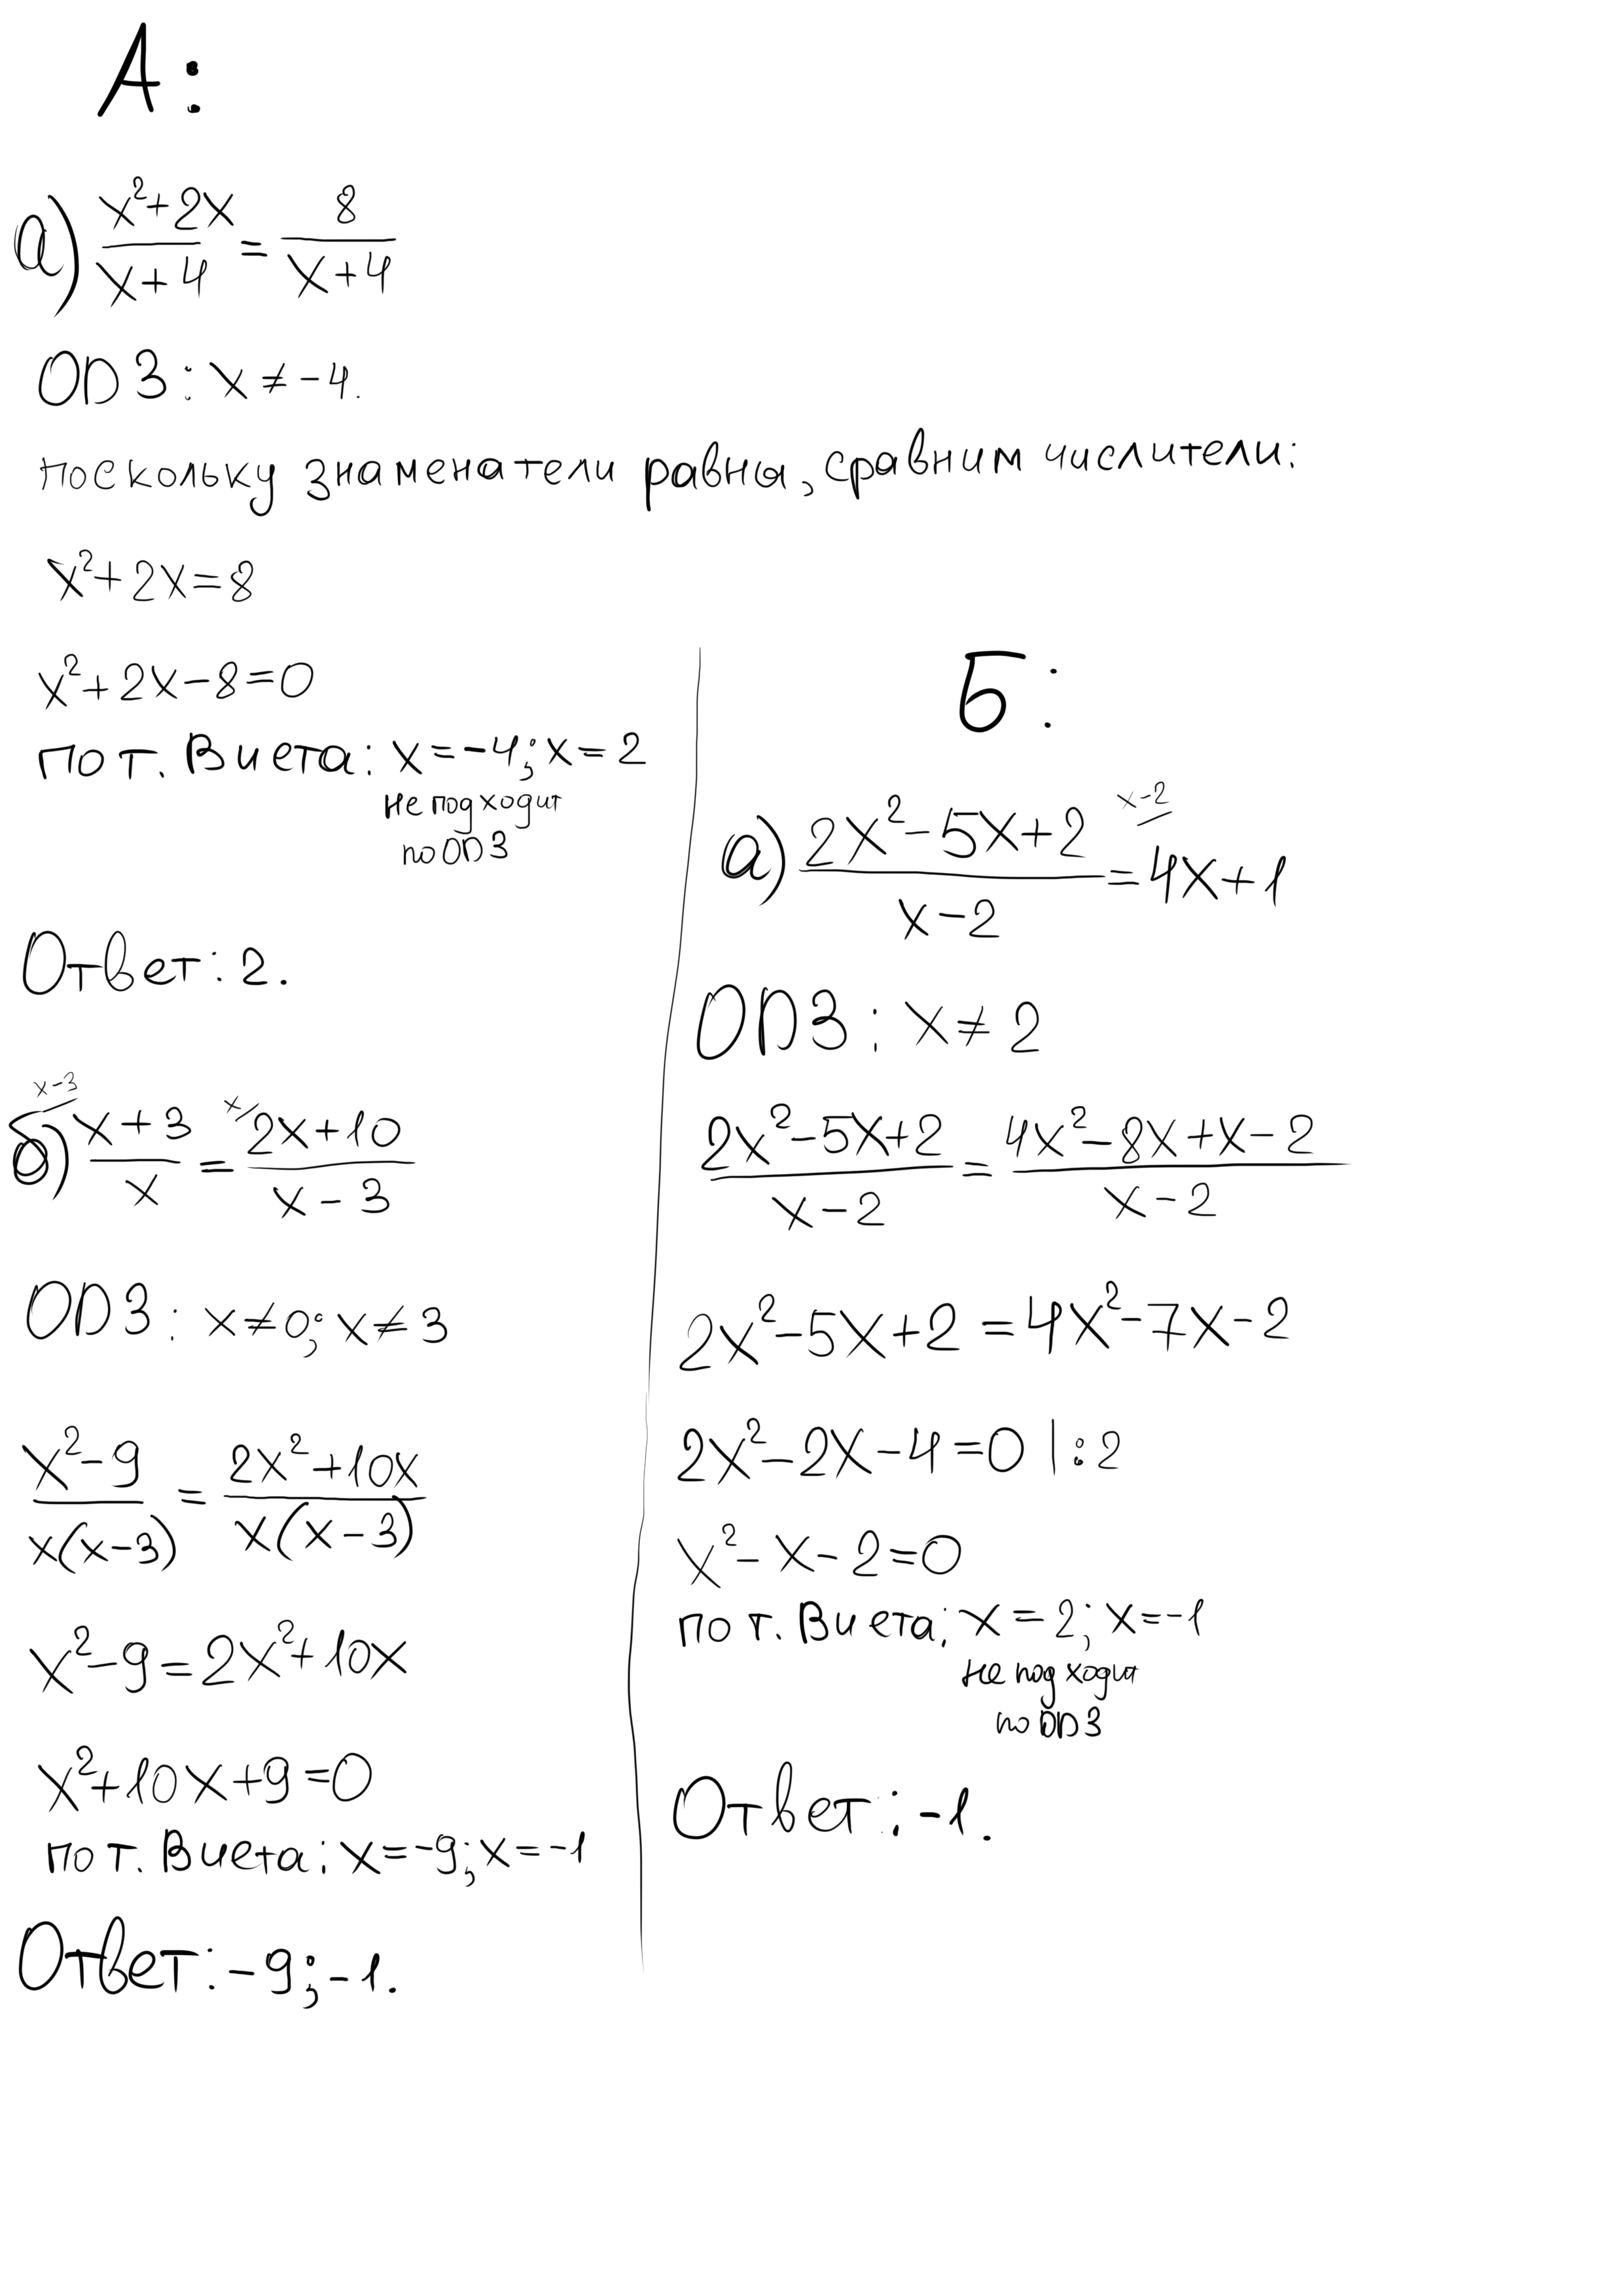 А:
а) (x²+2x)/(x+4) = 8/(x+4)
ОDЗ: x ≠ -4.
поскольку знаменатели равны, сравним числители:
x²+2x=8
x²+2x-8=0
по т. Виета: x=-4; x=2
не подходит
по ОDЗ
Ответ: 2.
x-3
x
б) (x+3)/x = (2x+10)/(x-3)
ОDЗ: x≠0; x≠3
(x²-9)/(x(x-3)) = (2x²+10x)/(x(x-3))
x²-9=2x²+10x
x²+10x+9=0
по т. Виета: x=-9; x=-1
Ответ: -9; -1.
Б:
x-2
а) (2x²-5x+2)/(x-2) = 4x+1
ОDЗ: x≠2
(2x²-5x+2)/(x-2) = (4x²-8x+x-2)/(x-2)
2x²-5x+2=4x²-7x-2
2x²-2x-4=0 |:2
x²-x-2=0
по т. Виета: x=2; x=-1
не подходит
по ОDЗ
Ответ: -1.